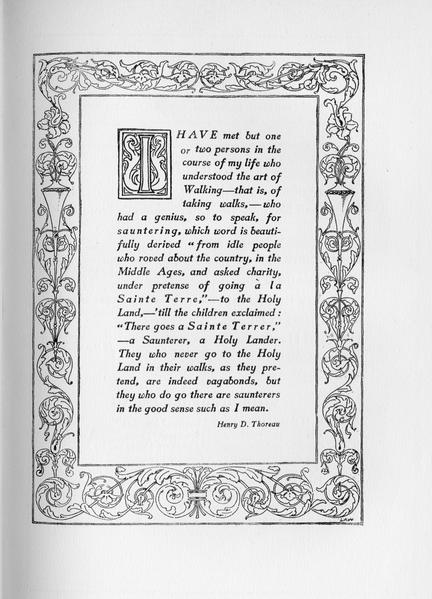 I HAVE met but one
or two persons in the
course of my life who
understood the art of
Walking—that is, of
taking walks,—who
had a genius, so to speak, for
sauntering, which word is beauti-
fully derived "from idle people
who roved about the country, in the
Middle Ages, and asked charity,
under pretense of going à la
Sainte Terre,"—to the Holy
Land,—'till the children exclaimed:
"There goes a Sainte Terrer,"
—a Saunterer, a Holy Lander.
They who never go to the Holy
Land in their walks, as they pre-
tend, are indeed vagabonds, but
they who do go there are saunterers
in the good sense such as I mean.
Henry D. Thoreau